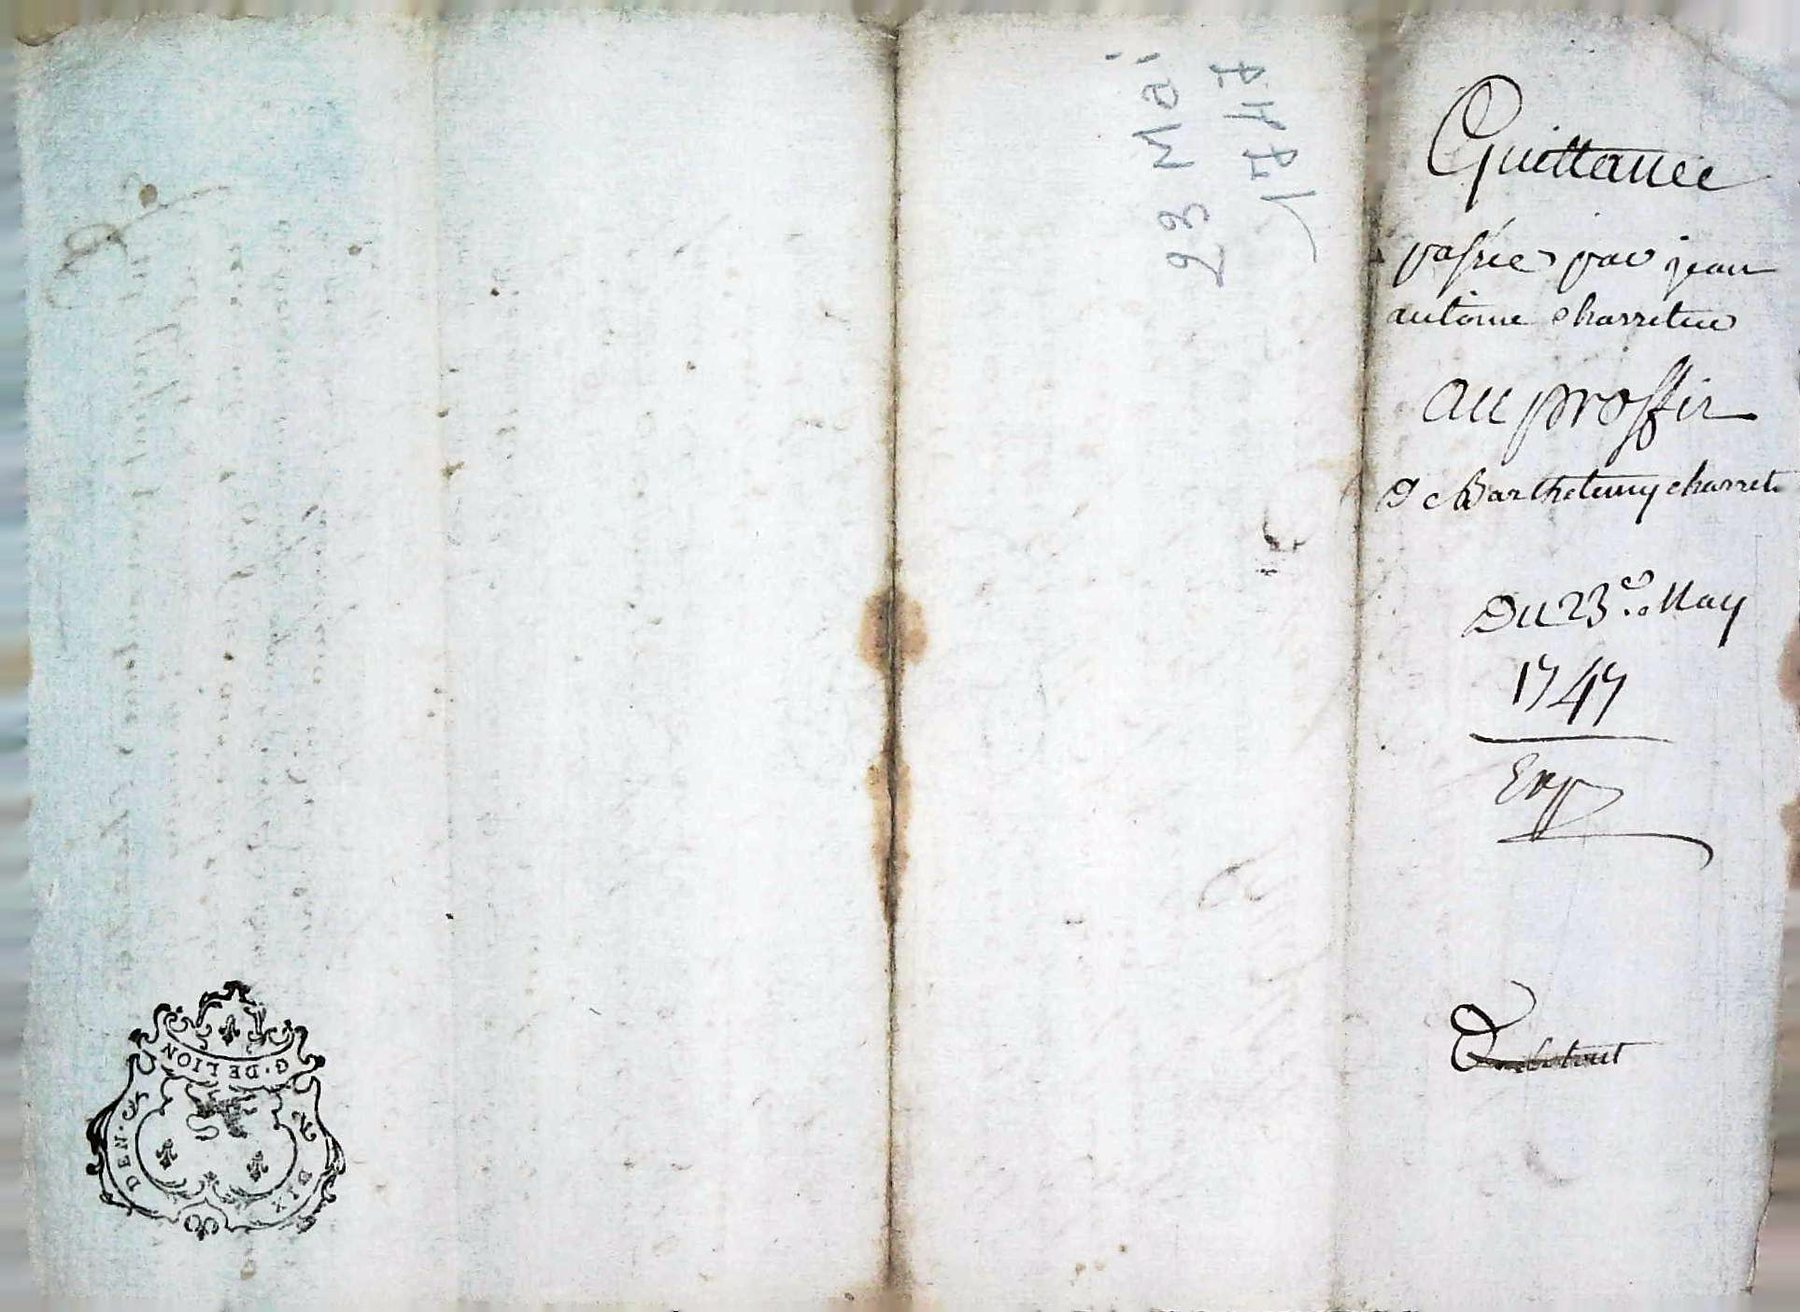 23 Mai
1747
Quittance
passée par jean
antoine charretier
au proffit
De Barthelemy charret
Du 23e May
1747
Exp
G·DE LION
DEN·
SIX